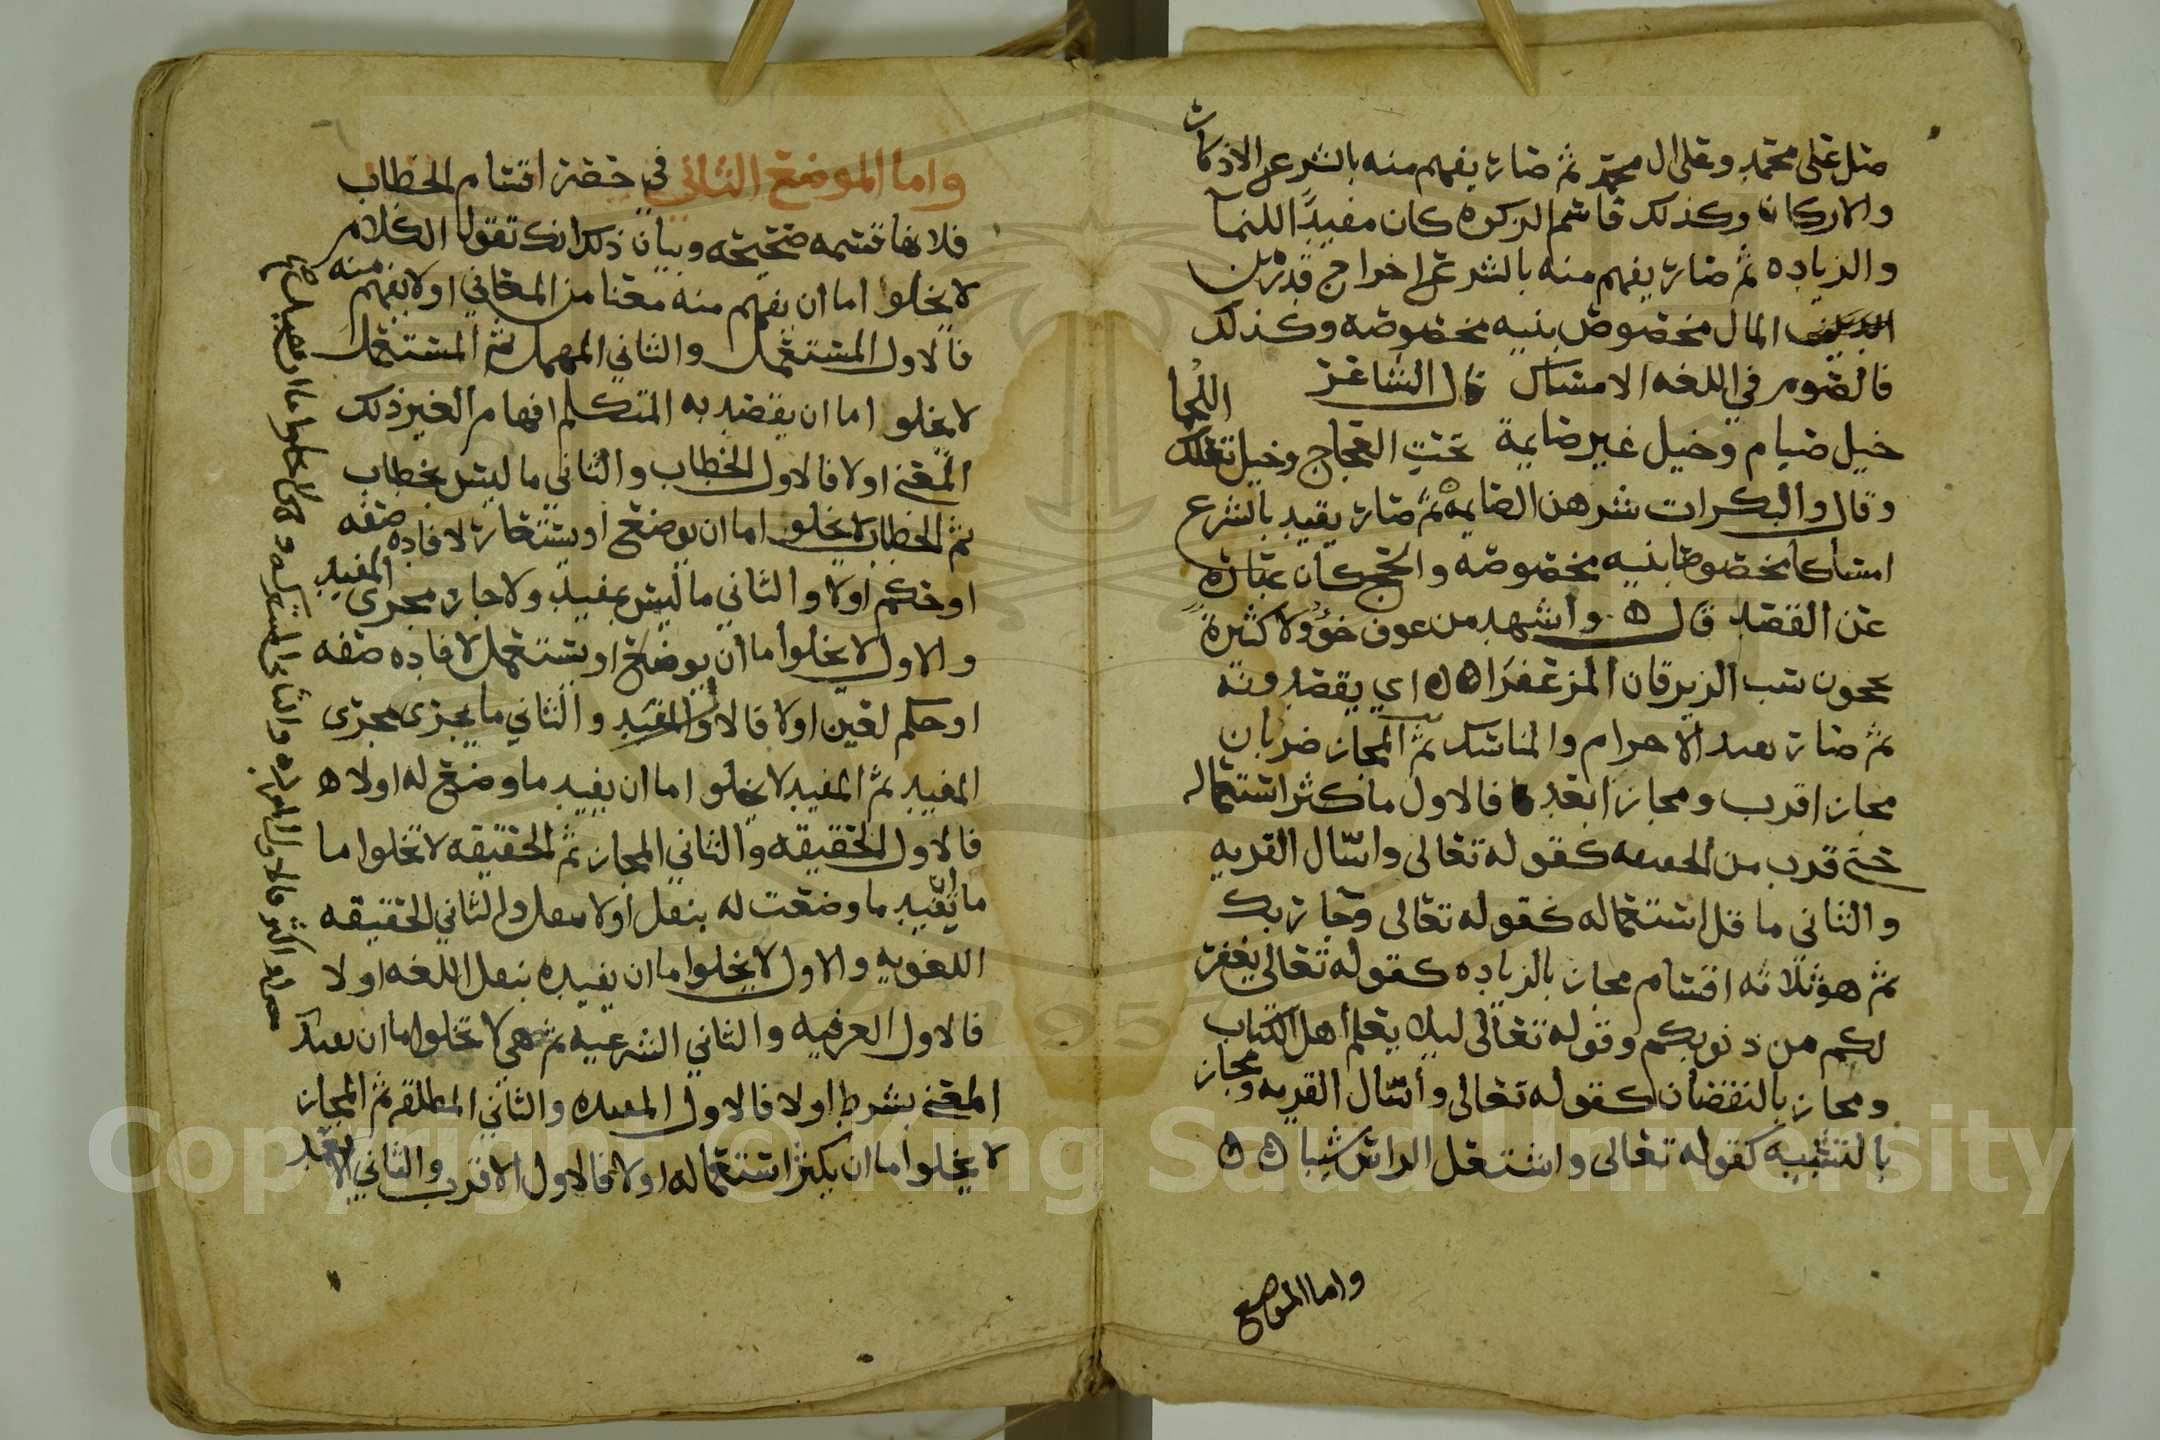 صل على محمد وعلى ال محمد ثم صار يفهم منه بالشرع الاذكار
والاركان وكذلك فاسم الزكوه كان مفيدًا للنمآ
والزياده ثم صار يفهم منه بالشرع اخراج قدر من
المال مخصوص بنيه مخصوصه وكذلك
فالصوم في اللغه الامساك قال الشاعر
خيل صيام وخيل غير صايمة تحت العجاج وخيل تعلك اللجما
وقال والبكرات شرهن الصايمه ثم صار يفيد بالشرع
امساكا مخصوصا بنيه مخصوصه والحج كان عباره
عن القصد قال واشهد من عوف حؤولا كثيرة
يحجون سب الزبرقان المزعفرا اي يقصدونه
ثم صار يفيد الاحرام والمناسك ثم المجاز ضربان
مجاز اقرب ومجاز ابعد فالاول ما كثر استعماله
حتى قرب من الحقيقه كقوله تعالى واسال القريه
والثاني ما قل استعماله كقوله تعالى وجا ربك
ثم هو ثلاثه اقسام مجاز بالزياده كقوله تعالى يغفر
لكم من ذنوبكم وقوله تعالى ليلا يعلم أهل الكتاب
ومجاز بالنقصان كقوله تعالى وأسال القريه ومجاز
بالتشبيه كقوله تعالى واشتعل الراس شيبا
واما الموضع
واما الموضع الثاني في حصر اقسام الخطاب
فلانها قسمه صحيحه وبيان ذلك انك تقول الكلام
لا يخلوا اما ان يفهم منه معنا من المعاني او لا يفهم منه
فالاول المستعمل والثاني المهمل ثم المستعمل
لا يخلو اما ان يقصد به المتكلم افهام الغير ذلك
المعنى اولا فالاول الخطاب والثاني ما ليس بخطاب
ثم الخطاب لا يخلو اما ان يوضع أو يستعار لافاده صفه
او حكم اولا والثاني ما ليس بمفيد ولا جار مجرى المفيد
والاول لا يخلوا اما أن يوضع او يستعمل لافاده صفه
او حكم لعين اولا فالاول المفيد والثاني ما يجرى مجرى
المفيد ثم المفيد لا يخلو اما ان يفيد ما وضع له اولا
فالاول الحقيقه والثاني المجاز ثم الحقيقه لا تخلوا اما
ان تفيد ما وضعت له بنقل أولا بنقل والثاني الحقيقه
اللغويه والاول لا يخلوا اما ان يفيده بنقل اللغه او لا
فالاول العرفيه والثاني الشرعيه ثم هي لا تخلوا اما ان تفيد
المعنى بشرط اولا فالاول المقيده والثاني المطلقه ثم المجاز
لا يخلوا اما ان يكثر استعماله اولا فالاول الاقرب والثاني الابعد